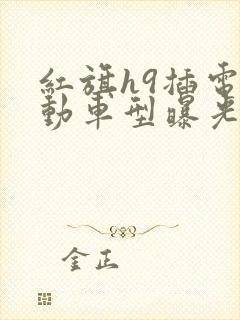 紅旗h9插電
動車型曝光
金正